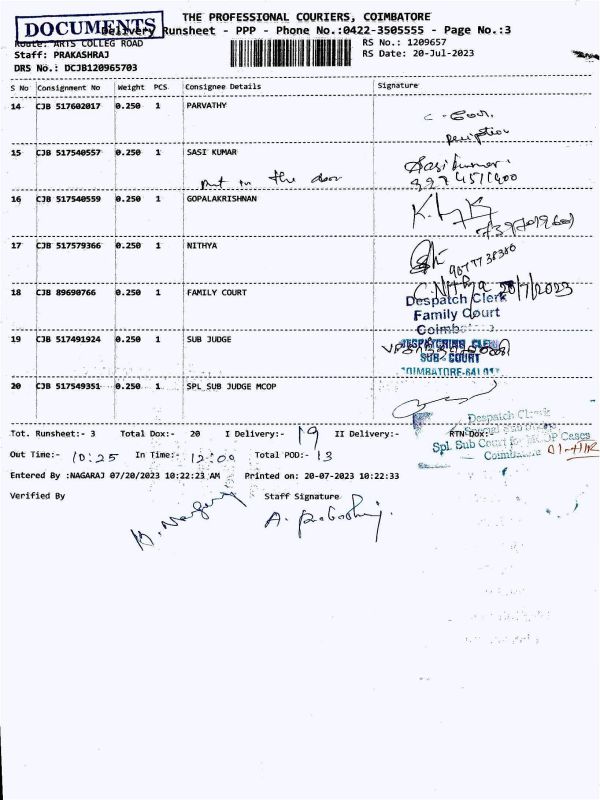 THE PROFESSIONAL COURIERS, COIMBATORE
DOCUMENTS
Delivery Runsheet - PPP - Phone No.:0422-3505555 - Page No.:3
Route: ARTS COLLEG ROAD
RS No.: 1209657
Staff: PRAKASHRAJ
RS Date: 20-Jul-2023
DRS No.: DCJB120965703
S No Consignment No Weight PCS Consignee Details Signature
14 CJB 517602017 0.250 1 PARVATHY
15 CJB 517540557 0.250 1 SASI KUMAR
Sasikumar.
put in the door
16 CJB 517540559 0.250 1 GOPALAKRISHNAN
17 CJB 517579366 0.250 1 NITHYA
9077738380
C. Nithya 20/7/2023
18 CJB 89690766 0.250 1 FAMILY COURT
Despatch Clerk
Family Court
19 CJB 517491924 0.250 1 SUB JUDGE
SUB- COURT
20 CJB 517549351 0.250 1 SPL SUB JUDGE MCOP
Despatch Clerk
Tot. Runsheet:- 3 Total Dox:- 20 I Delivery:- 19 II Delivery:- RTN Dox:-
Spl. Sub Court for MCOP Cases
Coimbatore
Out Time:- 10:25 In Time:- 12:00 Total POD:- 13
Entered By :NAGARAJ 07/20/2023 10:22:23 AM Printed on: 20-07-2023 10:22:33
Verified By Staff Signature